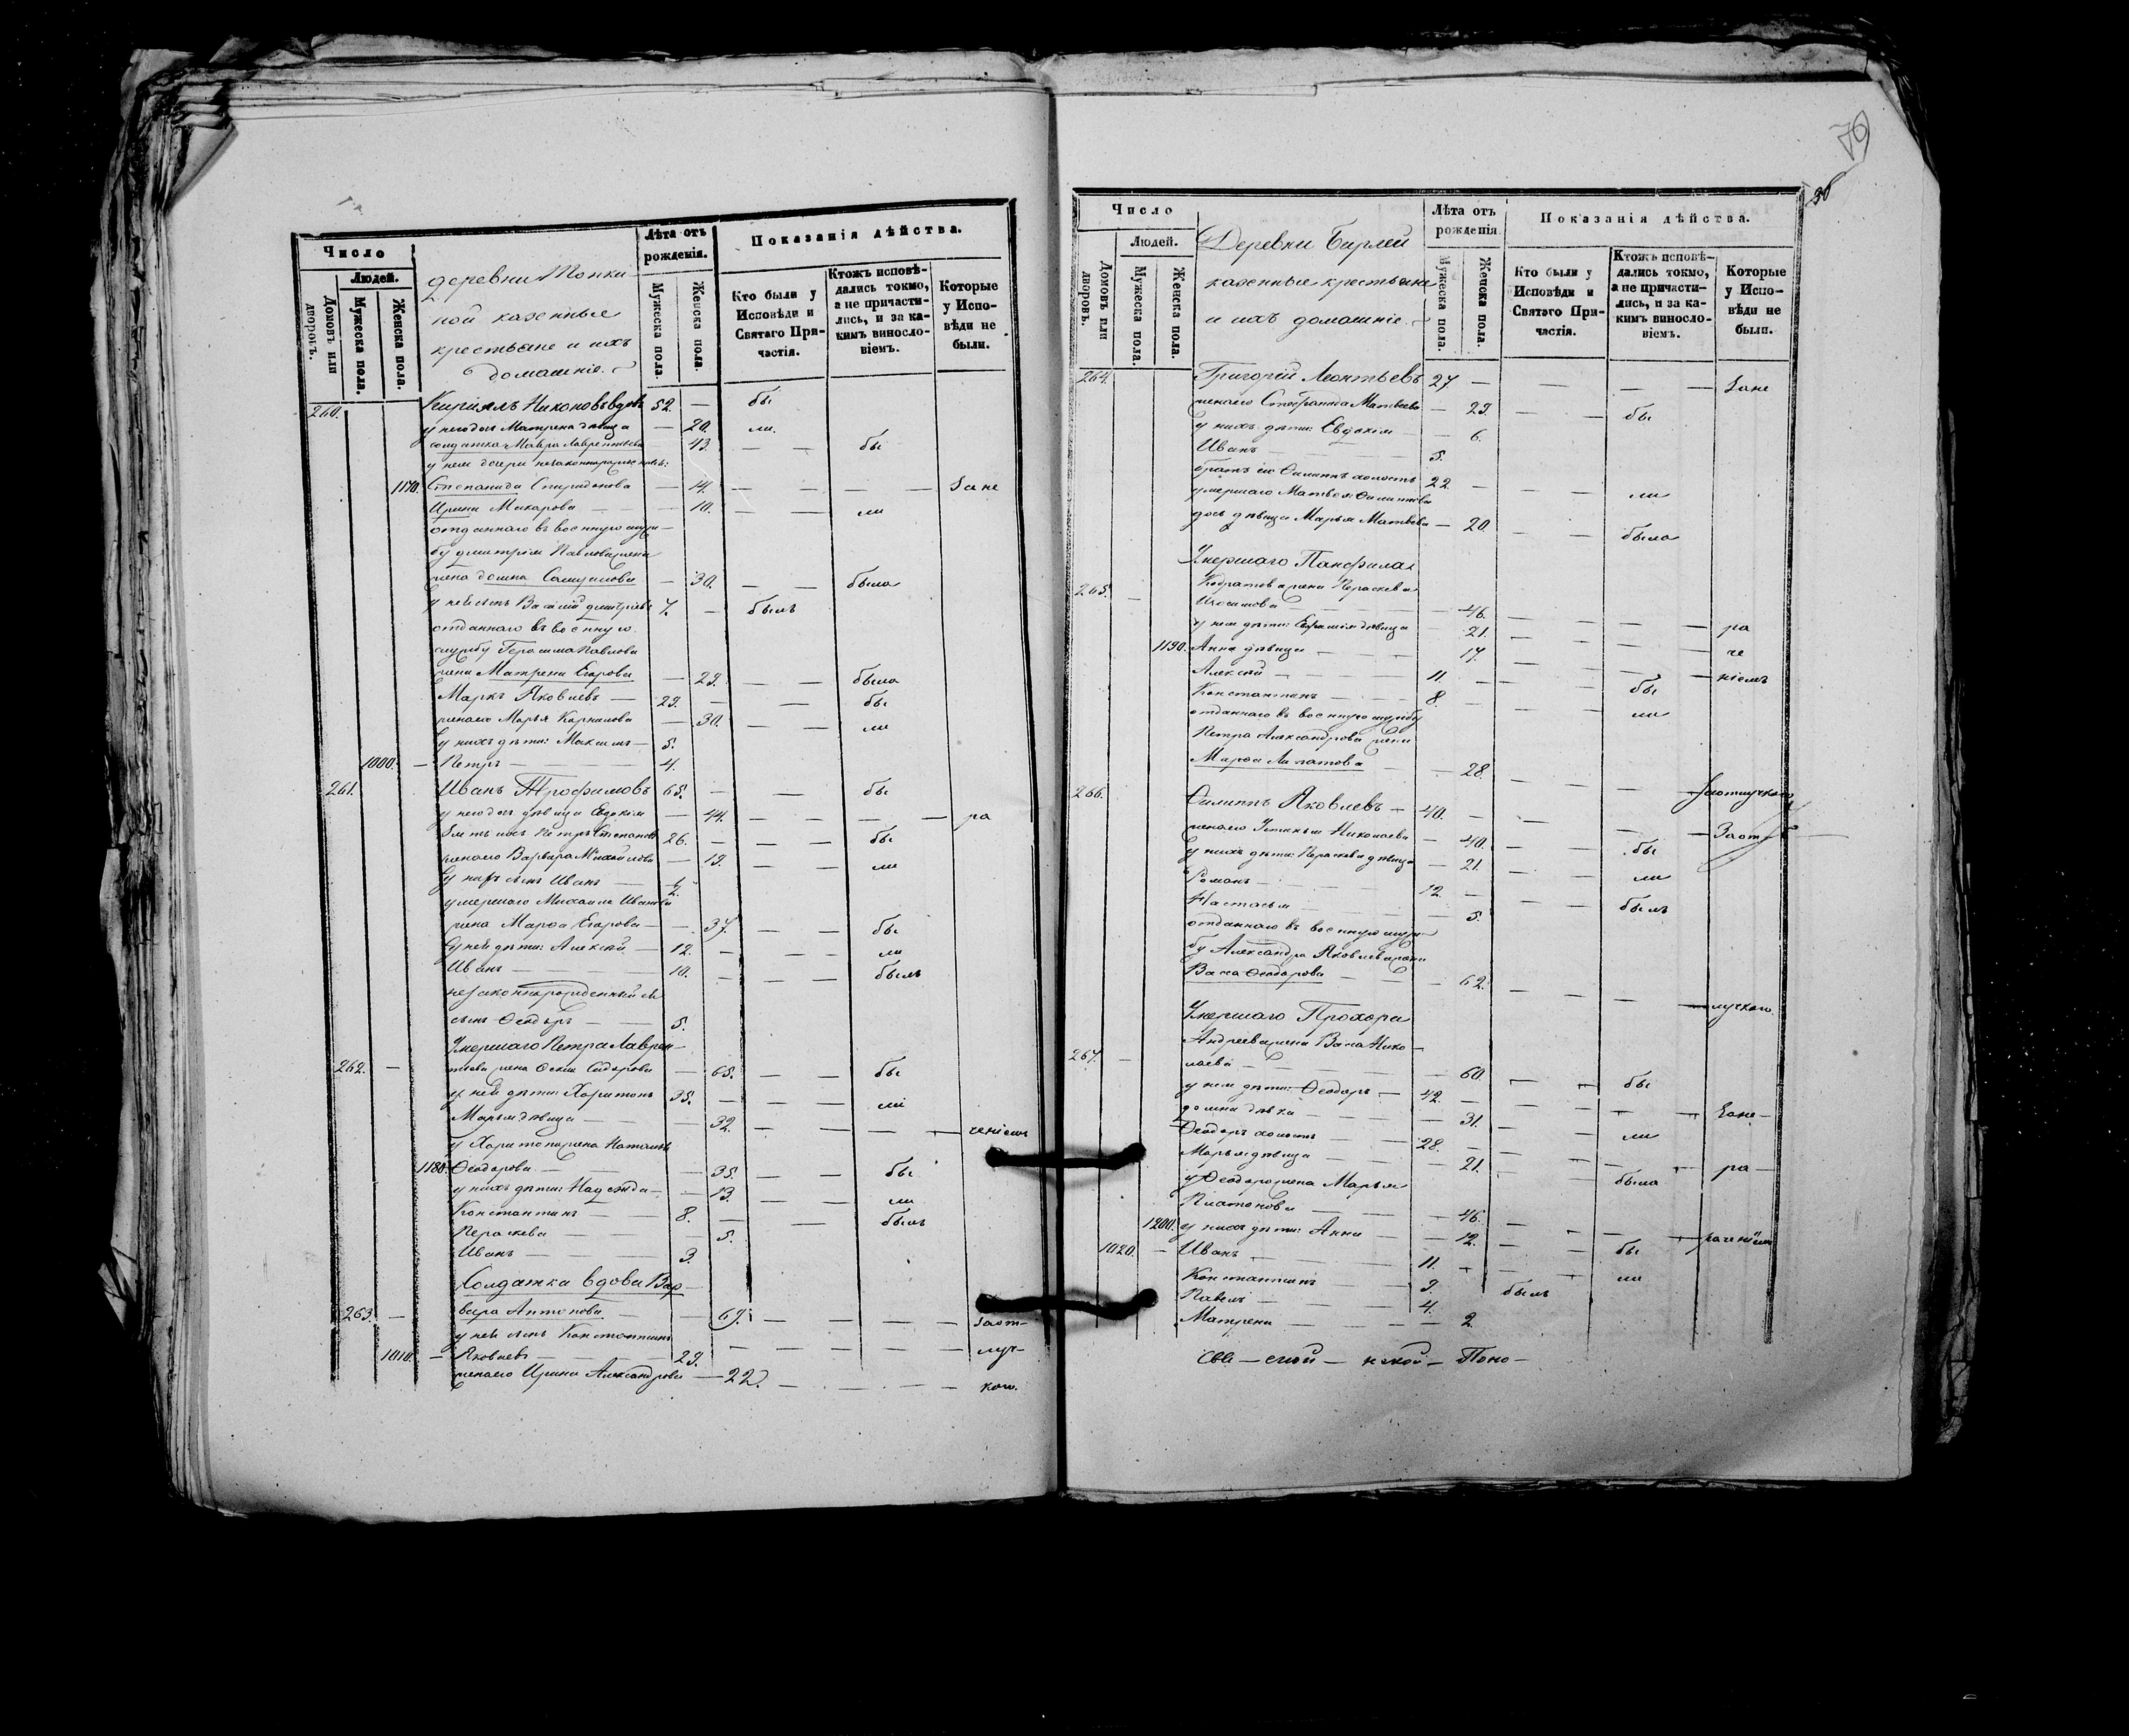 Число
Людей.
Домовъ или дворовъ.
Мужеска пола.
Женска пола.
деревни Топки
ной казенные
крестьяне и ихъ
домашніе.
Лѣта отъ рожденія.
Мужеска пола.
Женска пола.
Показанія дѣйства.
Кто были у Исповѣди и Святаго Причастія.
Ктожъ исповѣдались токмо, а не причастились, и за какимъ винословіемъ.
Которые у Исповѣди не были.
260. Кириллъ Никоновъ вдовъ 52. — бы
у него дочь Матрена дѣвица — 20. ли.
солдатка Мавра Лаврентьева 43. — — бы
у нее дочери незаконнорожденные:
1170. Степанида Спиридонова — 14. — — — — Зане
Ирина Макарова — — 10. — — ли
отданнаго въ военную служ—
бу Дмитрія Павлова жена
Домна Самуилова — 30. — — была
у ней сынъ Василій Дмитріевъ 7. — былъ
отданнаго въ военную
службу Герасима Павлова
жена Матрена Егорова — 29. — — была
Маркъ Яковлевъ — 29. — — бы
жена его Марья Карпилова — 30. — — ли
у нихъ дѣти: Максимъ — 5.
1000. — Петръ — 4.
261. Иванъ Трофимовъ 65. — — бы
у него дочь дѣвица Евдокія — 44. — — — — ра
Зять ихъ Петръ Степановъ 26. — — — бы
жена его Варвара Михайлова — 19. — — ли
у нихъ сынъ Иванъ — ½.
умершаго Михаила Иванова
жена Марѳа Егорова — — 37. — — бы
у ней дѣти: Алексѣй — 12. — — ли
Иванъ — 10. — — былъ
незаконнорожденный ея
сынъ Ѳеодоръ — — 5.
Умершаго Петра Лаврен—
262. — тьева жена Ѳекла Сидорова — 65. — — бы
у ней дѣти: Харитонъ 35. — — ли
Марья дѣвица — — 32. — — — — ченіемъ
у Харитона жена Наталья
1180. Ѳеодорова — — 35. — — бы
у нихъ дѣти: Надежда — — 13. — — ли
Константинъ — — 8. — — былъ
Параскева — — 5.
Иванъ — — 3.
Солдатка вдова Вар—
263. — вара Антонова — — 67. — — — — Заот—
у ней сынъ Константинъ
1010. — Яковлевъ — 29. — — — — луч—
жена его Ирина Александрова — 22. — — — — кою.
70
Число
Людей.
Домовъ или дворовъ.
Мужеска пола.
Женска пола.
Деревни Бирлей
казенные крестьяне
и ихъ домашніе.
Лѣта отъ рожденія.
Мужеска пола.
Женска пола.
Показанія дѣйства.
Кто были у Исповѣди и Святаго Причастія.
Ктожъ исповѣдались токмо, а не причастились, и за какимъ винословіемъ.
Которые у Исповѣди не были.
264. Григорій Леонтьевъ 27. — — — — Зане
жена его Степанида Матвѣева — 29. — — бы
у нихъ дѣти: Евдокія — — 6.
Иванъ — 5.
братъ его Филиппъ холостъ 22. — — — ли
умершаго Матвея Филиппова
дочь дѣвица Марья Матвѣева — 20 — — была
Умершаго Панфила
265. — Кодратова жена Параскева
Изосимова — — 46. — — — — ра
у нее дѣти: Евфимія дѣвица — 21. — — — — че
1190. Анна дѣвица — — — 17. — — — — ніемъ
Алексѣй — 11. — — — бы
Константинъ — 8. — — — ли
отданнаго въ военную службу
Петра Александрова жена
Марѳа Липатова — — 28. — — — — Заотлучкою
266. Филиппъ Яковлевъ — 40. — — — — Заот
жена его Устинья Николаева — 40. — — бы
у нихъ дѣти: Параскева дѣвица — 21. — — ли
Романъ — 12. — — — былъ
Настасья — — 5.
отданнаго въ военную служ—
бу Александра Яковлева жена
Васса Ѳеодорова — — 62. — — — — лучкою
Умершаго Прохора
267. — Андреева жена Васса Нико—
лаева — — 60. — — бы
у нее дѣти: Ѳеодоръ — 42. — — — — Зане—
Домна дѣвка — — 31. — — ли
Ѳеодоръ холостъ — 28. — — — — ра —
Марья дѣвица — — 21. — — была
у Ѳеодора жена Марья
Платонова — — 46. — — — — раченіемъ
1200. у нихъ дѣти: Анна — — 12. — — бы
1020. — Иванъ — 11. — — ли
Константинъ — 9. — былъ
Павелъ — 4.
Матрена — — — 2.